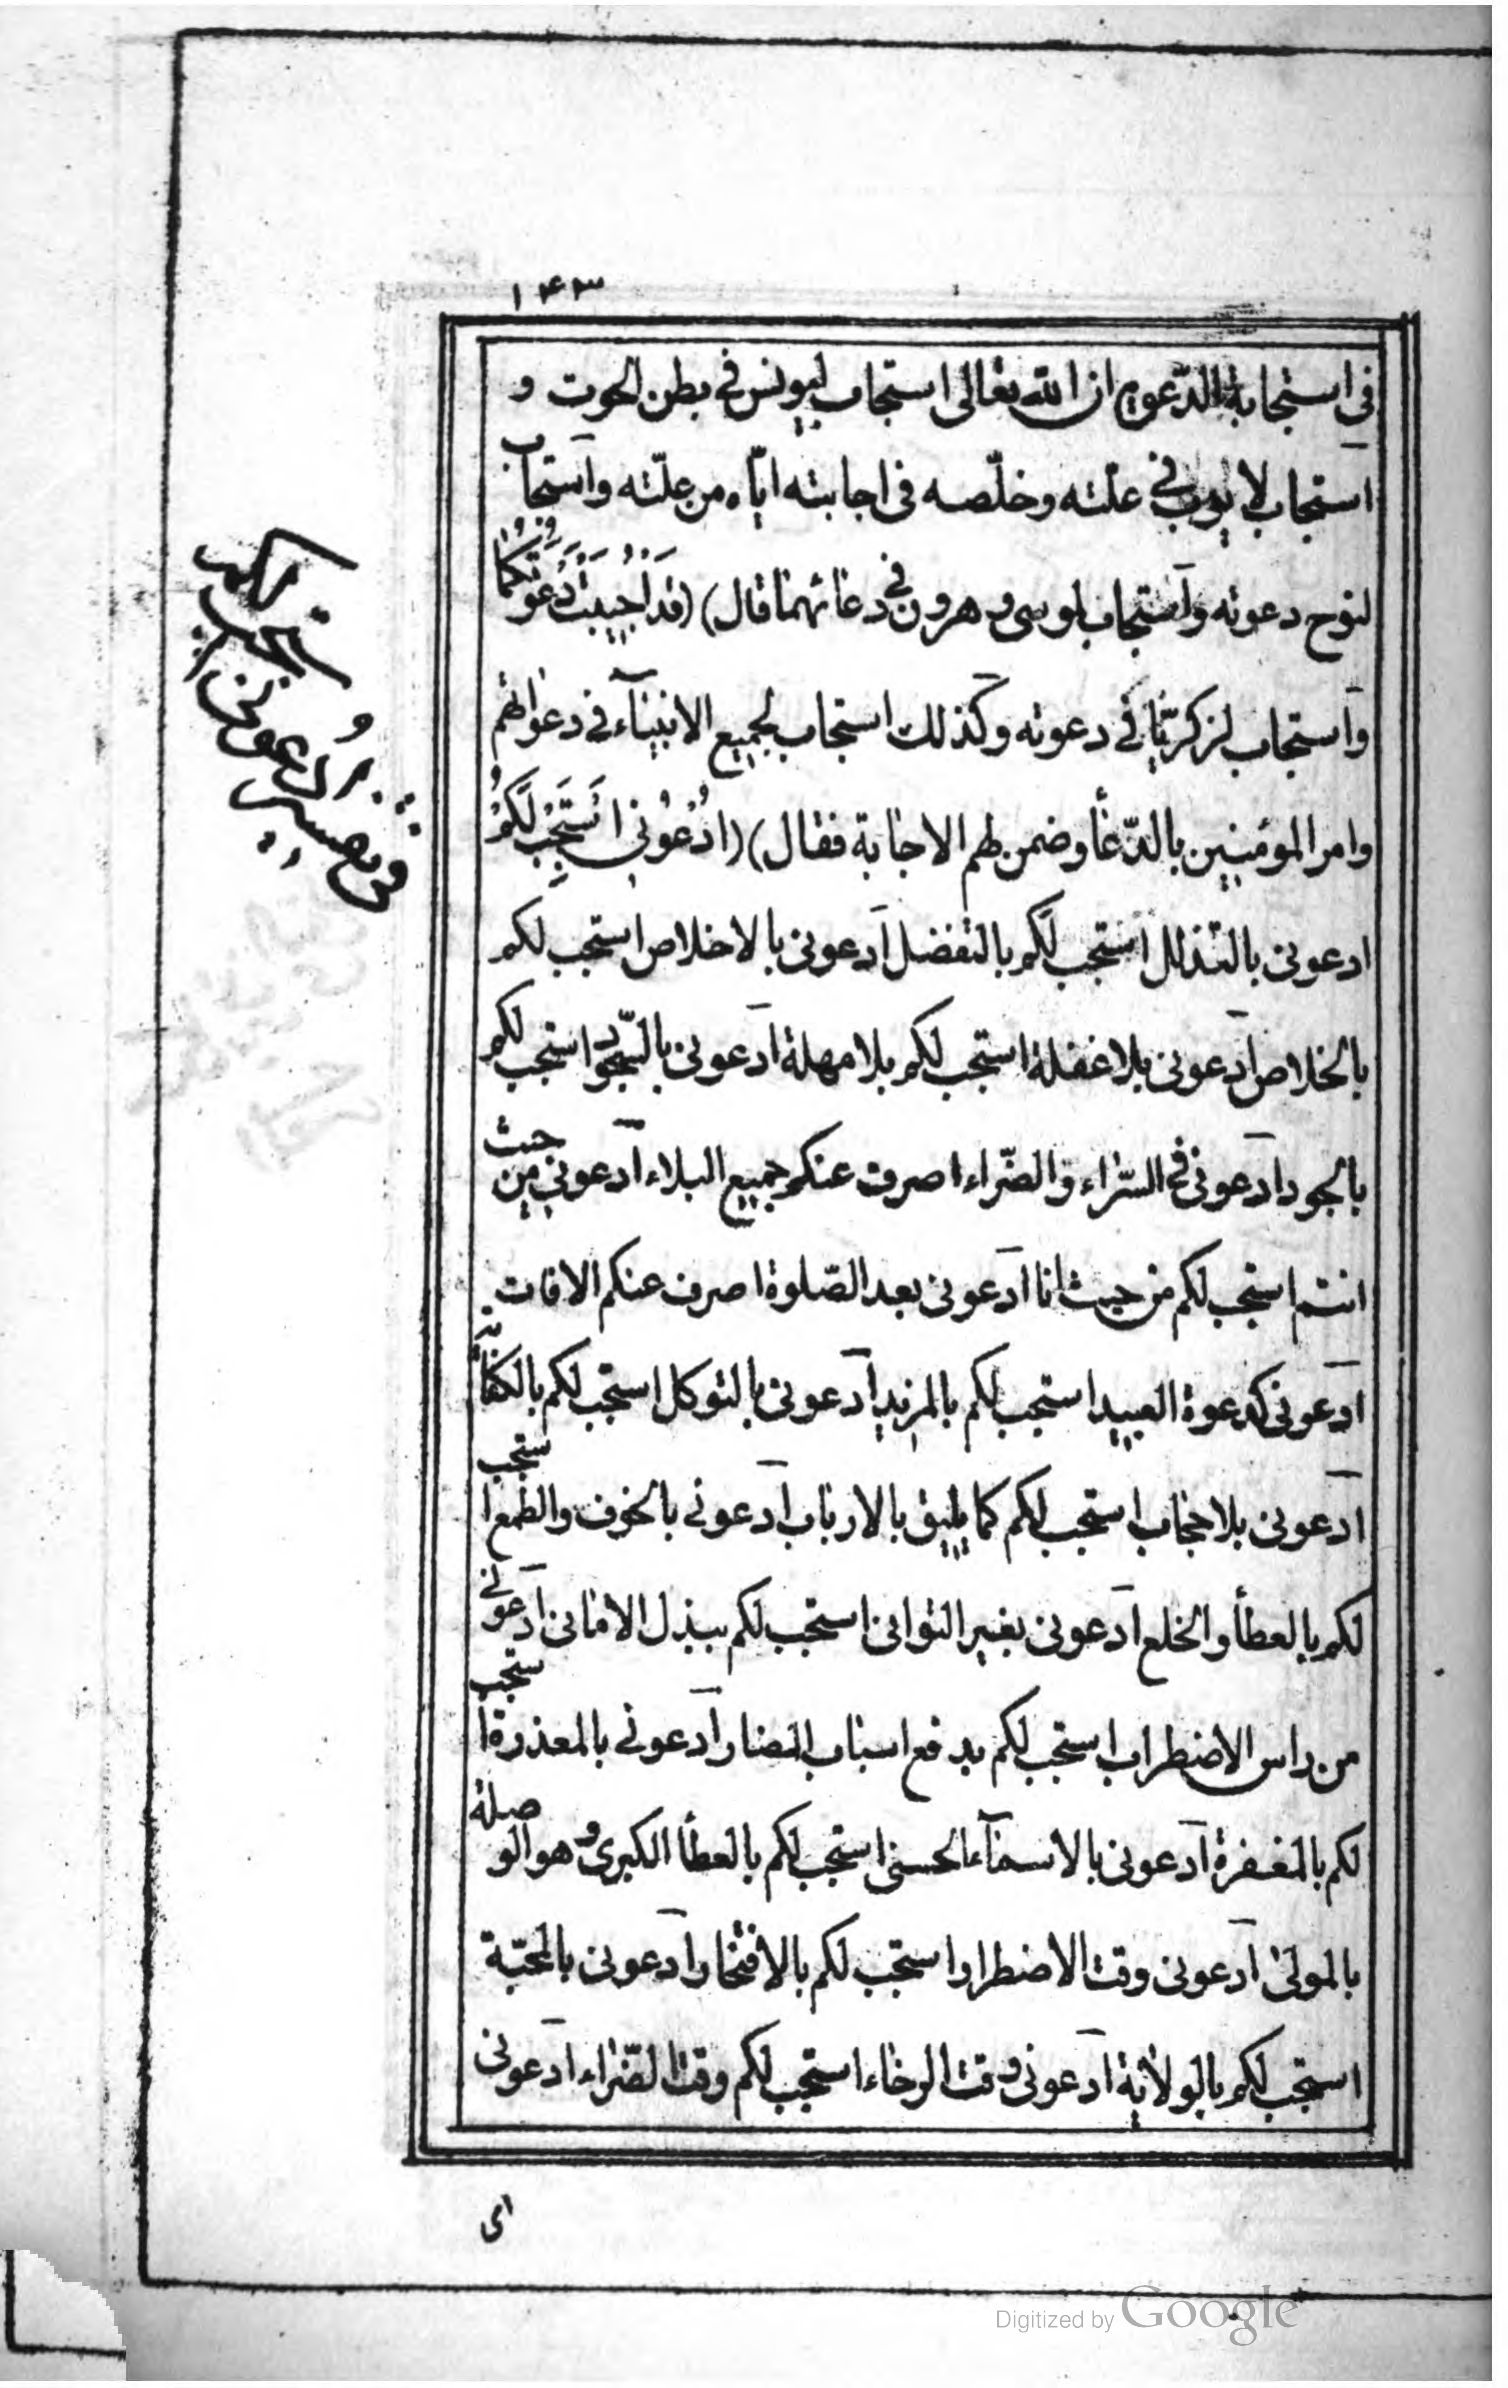 ۱۴۳
فى استجابة الدّعوة ان الله تعالى استجاب ليونس فى بطن الحوت و
استجاب لايوب فى علّته وخلّصه فى اجابته ايّاه من علّته واستجاب
لنوح دعوته واستجاب لموسى وهرون فى دعائهما قال) (قَدْ اُجِيبَتْ دَعْوَتُكُمَا
واستجاب لزكريّا فى دعوته وكذلك استجاب لجميع الانبيآء فى دعواتهم
وامر المؤمنين بالدّعأ وضمن لهم الاجابة فقال) (ادْعُونِى اَسْتَجِبْ لَكُمْ
ادعونى بالتذلل استجب لكم بالتفضل ادعونى بالاخلاص استجب لكم
بالخلاص ادعونى بلا غفلة استجب لكم بلا مهلة ادعونى بالسّجود استجب لكم
بالجود ادعونى فى السّراء والضّراء اصرف عنكم جميع البلاء ادعونى من حيث
انتم استجب لكم من حيث انا ادعونى بعد الصّلوة اصرف عنكم الافات
ادعونى كدعوة العبيد استجب لكم بالمزيد ادعونى بالتوكل استجب لكم بالكفاية
ادعونى بلا حجاب استجب لكم كما يليق بالارباب ادعونى بالخوف والطمع استجب
لكم بالعطأ والخلع ادعونى بغير التوانى استجب لكم ببذل الامانى ادعونى
من راس الاضطراب استجب لكم بدفع اسباب المضار ادعونى بالمعذرة استجب
لكم بالمغفرة ادعونى بالاسمآء الحسنى استجب لكم بالعطأ الكبرى وهو الوصلة
بالمولى ادعونى وقت الاضطرار استجب لكم بالافتخار ادعونى بالمحبّة
استجب لكم بالولاية ادعونى وقت الرخاء استجب لكم وقت الضّراء ادعونى
اى
فى تفسير
ادعونى
استجب لكم
Digitized by Google